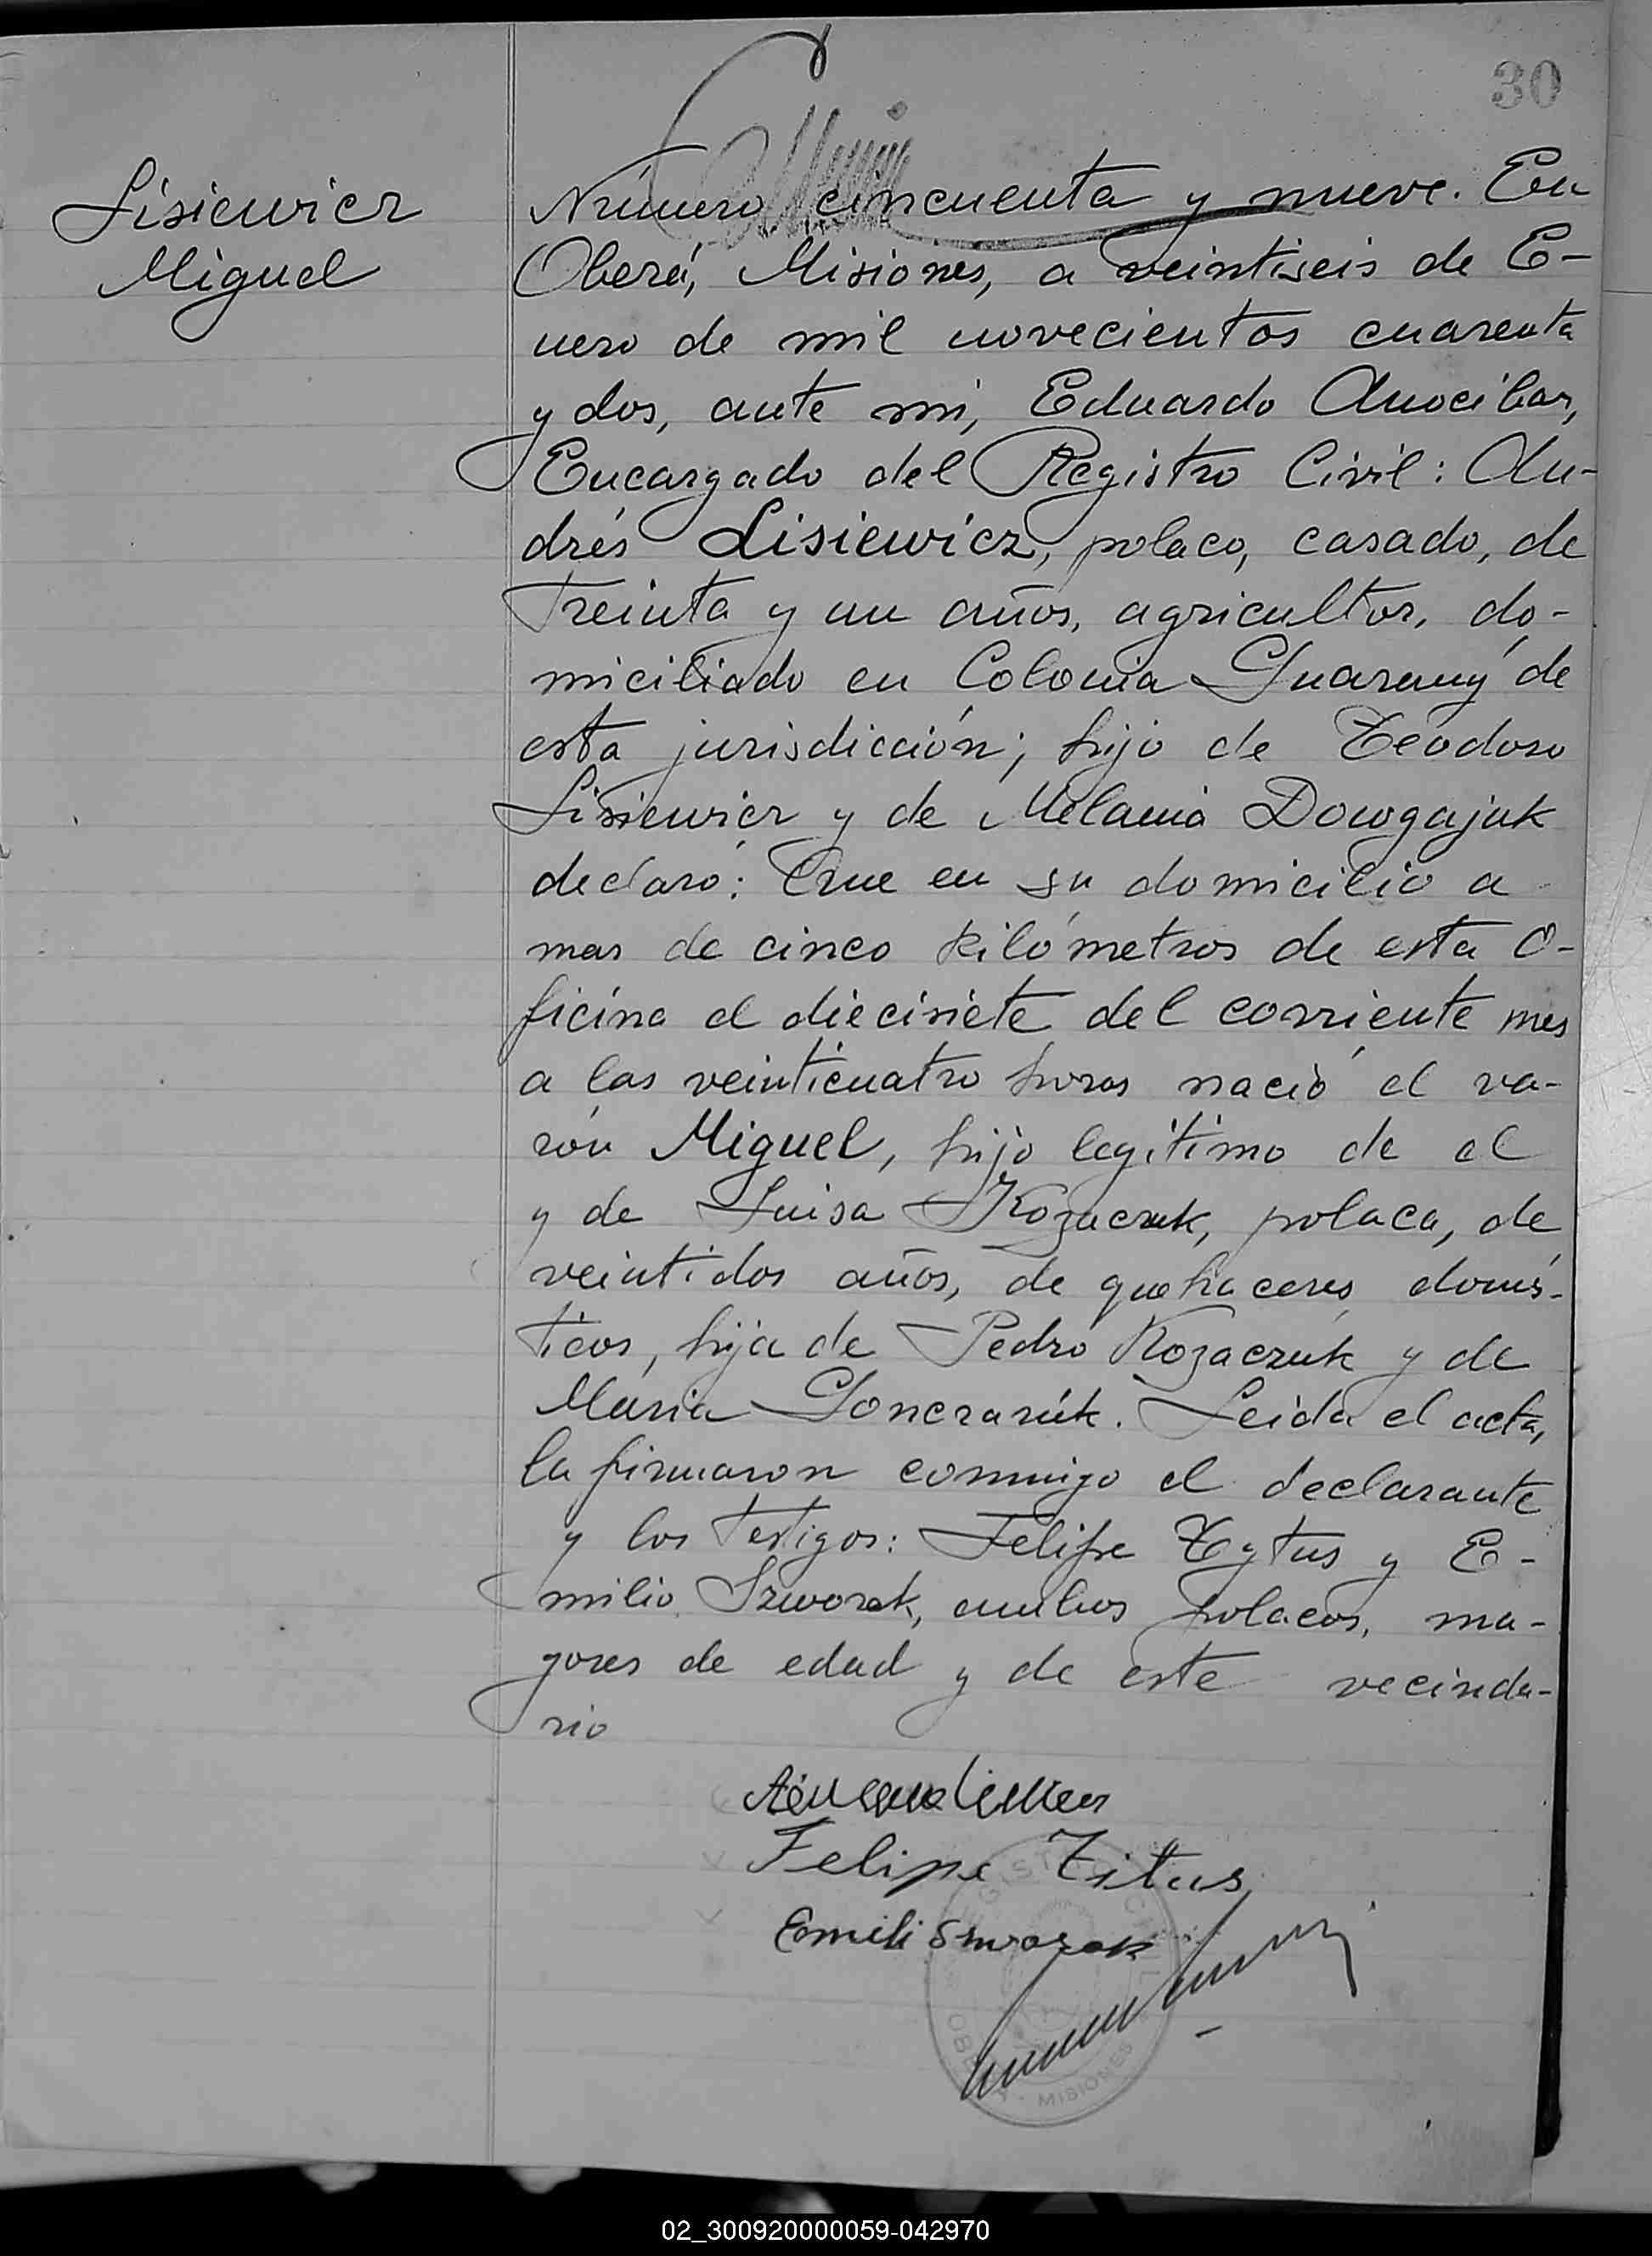 30
Lisiewicz
Miguel
Número cincuenta y nueve. En
Oberá, Misiones, a veintiseis de E-
nero de mil novecientos cuarenta
y dos, ante mi, Eduardo Anocibar,
Encargado del Registro Civil: An-
drés Lisiewicz, polaco, casado, de
treinta y un años, agricultor, do-
miciliado en Colonia Guarany de
esta jurisdicción; hijo de Teodoro
Lisiewicz y de Melania Dowgajuk
declaró: Que en su domicilio a
mas de cinco kilómetros de esta O-
ficina el diecisiete del corriente mes
a las veinticuatro horas nació el va-
rón Miguel, hijo legítimo de el
y de Luisa Kozaczuk, polaca, de
veintidos años, de quehaceres domés-
ticos, hija de Pedro Kozaczuk y de
Maria Gonczaruk. Leida el acta,
la firmaron conmigo el declarante
y los testigos: Felipe Tytus y E-
milio Szworak, ambos polacos, ma-
yores de edad y de este vecinda-
rio
Felipe Titus
Emili Sworak
MISIONES
02_300920000059-042970